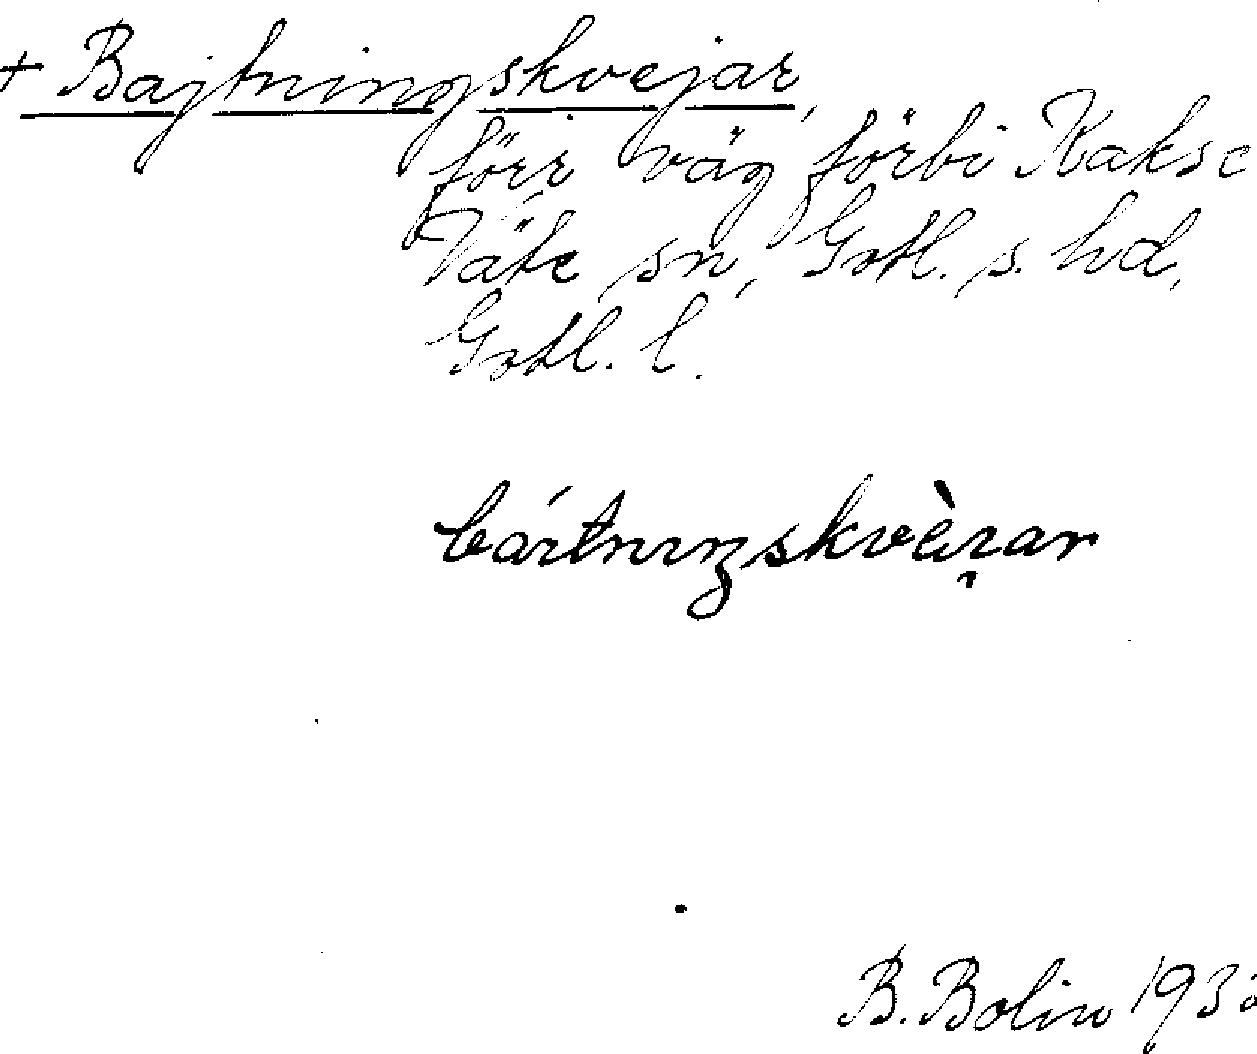 + Bajtningskvejar,
förr väg förbi Kakse
Väte sn, Gotl. s. hd,
Gotl. l.
báitnıŋskvὲı̯ar
B. Bolin 193